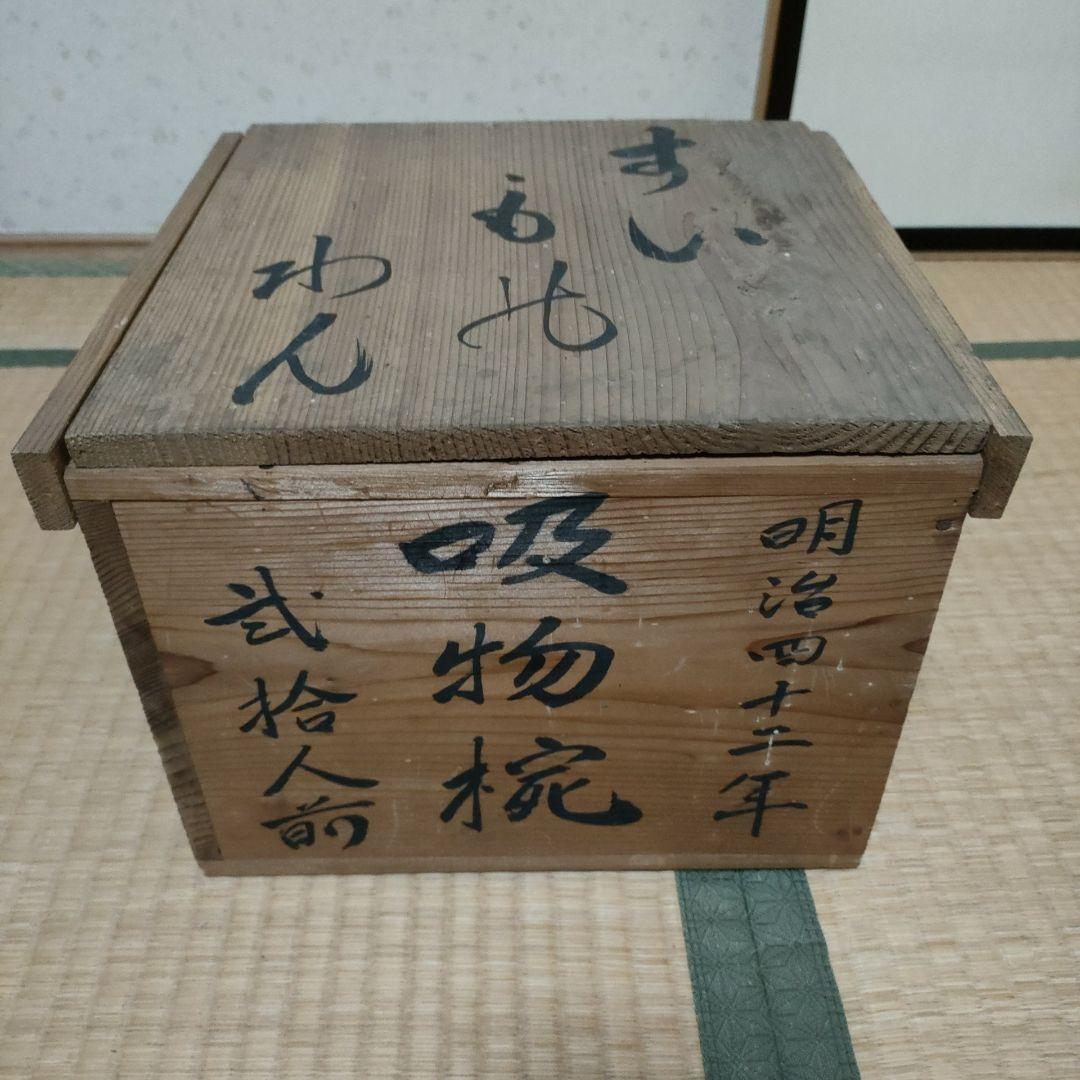 すい
もの
わん
明治四十二年
吸物椀
弐拾人前